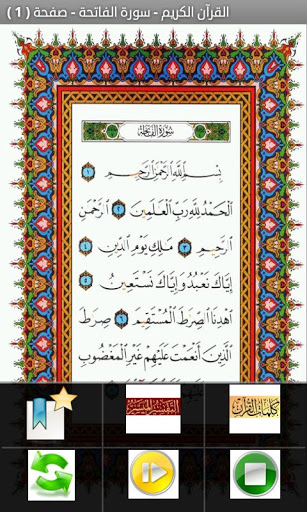 القرآن الكريم - سورة الفاتحة - صفحة ( 1 )
سُورَةُ الفَاتِحَةِ
بِسْمِ ٱللَّهِ ٱلرَّحْمَٰنِ ٱلرَّحِيمِ ١
ٱلْحَمْدُ لِلَّهِ رَبِّ ٱلْعَٰلَمِينَ ٢ ٱلرَّحْمَٰنِ
ٱلرَّحِيمِ ٣ مَٰلِكِ يَوْمِ ٱلدِّينِ ٤
إِيَّاكَ نَعْبُدُ وَإِيَّاكَ نَسْتَعِينُ ٥
ٱهْدِنَا ٱلصِّرَٰطَ ٱلْمُسْتَقِيمَ ٦ صِرَٰطَ
ٱلَّذِينَ أَنْعَمْتَ عَلَيْهِمْ غَيْرِ ٱلْمَغْضُوبِ
التفسير الميسر
كلمات القرآن